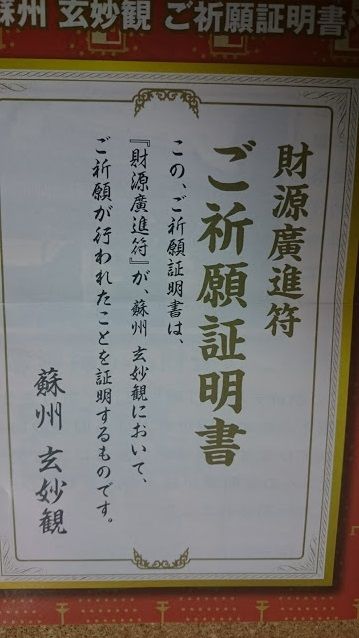 蘇州 玄妙観 ご祈願証明書
財源廣進符
ご祈願証明書
この、ご祈願証明書は、
『財源廣進符』が、蘇州 玄妙観において、
ご祈願が行われたことを証明するものです。
蘇州 玄妙観